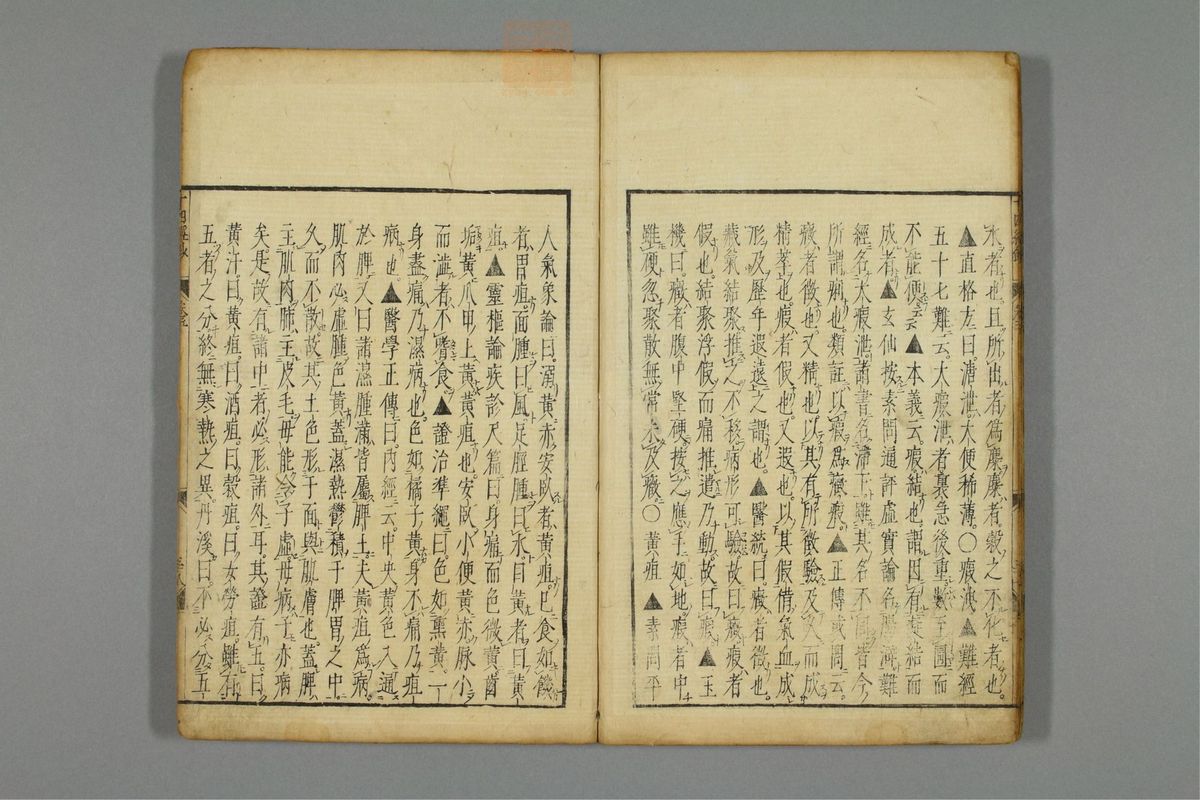 水者也且所出者爲麋麋者穀之不化者也
▲直格方曰溏泄大便稀薄○瘕泄▲難經
五十七難云大瘕泄者裏急後重數至圊而
不能便云云▲本義云瘕結也謂因有凝結而
成者▲玄仙按素問通評虛實論名腸澼難
經名大瘕泄諸書名滯下雖其名不同皆今
所謂痢也類註以瘕爲癥瘕▲正傳或問云
癥者徵也又精也以其有所徵驗及久而成
精萃也瘕者假也又遐也以其假借氣血成
形及歷年遐遠之謂也▲醫統曰癥者徵也
藏氣結聚推之不移病形可驗故曰癥瘕者
假也結聚浮假而痛推遣乃動故曰瘕▲玉
機曰癥者腹中堅硬按之應手如地瘕者中
雖硬忽聚散無常未及癥○黃疸▲素問平
人氣象論曰溺黃赤安臥者黃疸已食如饑
者胃疸面腫曰風足脛腫曰水目黃者曰黃
疸▲靈樞論疾診尺篇曰身痛而色微黃齒
垢黃爪甲上黃黃疸也安臥小便黃赤脉小
而澁者不嗜食▲證治準繩曰色如熏黃一
身盡痛乃濕病也色如橘子黃身不痛乃疸
病也▲醫學正傳曰內經云中央黃色入通
於脾又曰諸濕腫滿皆屬脾土夫黃疸爲病
肌肉必虛腫色黃蓋濕熱鬱積于脾胃之中
久而不散故其土色形于面與肌膚也蓋脾
主肌肉肺主皮毛母能令子虛母病子亦病
矣是故有諸中者必形諸外耳其證有五曰
黃汗曰黃疸曰酒疸曰穀疸曰女勞疸雖有
五者之分終無寒熱之異丹溪曰不必分五